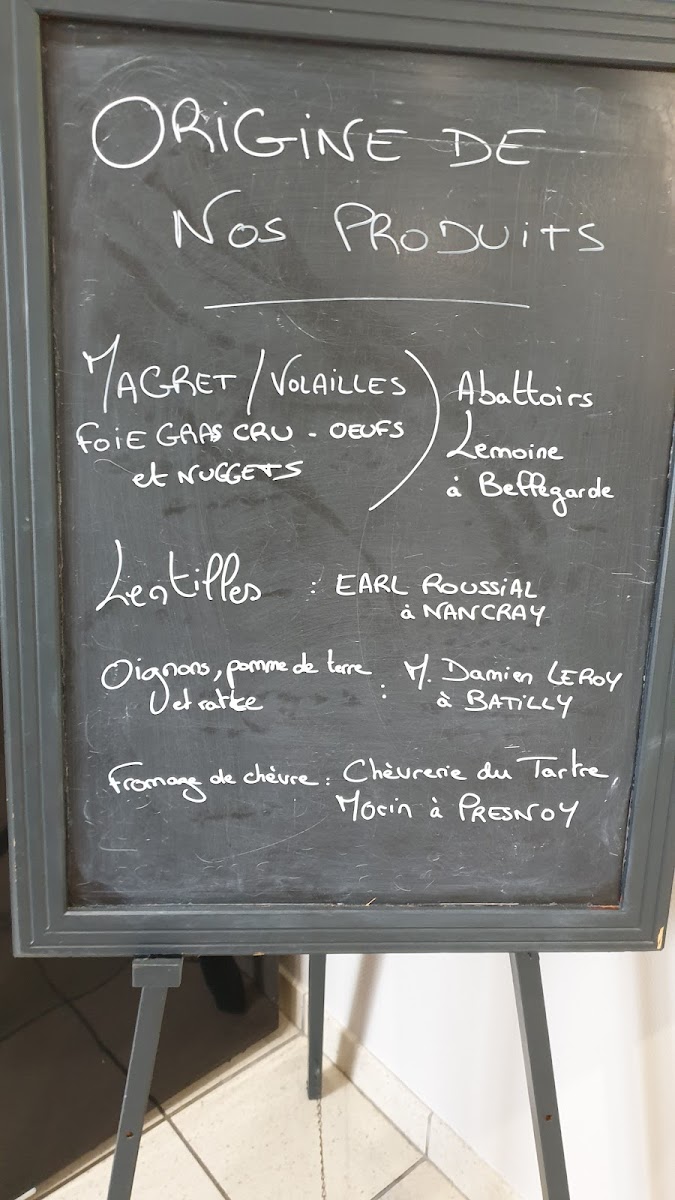 ORiGiNE DE
NOS PRODUiTS
MAGRET / VOLAILLES
FOIE GRAS CRU - OEUFS
et NUGGETS
Abattoirs
Lemoine
à Bellegarde
Lentilles : EARL ROUSSiAL
à NANCRAY
Oignons, pomme de terre : M. Damien LEROY
et ratte à BATiLLY
Fromage de chèvre : Chèvrerie du Tartre
Morin à PRESNOY